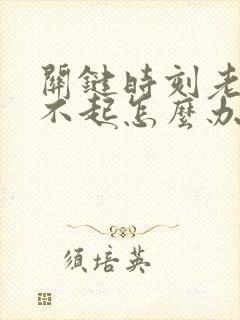 關鍵時刻老
不起怎麼办
須培英